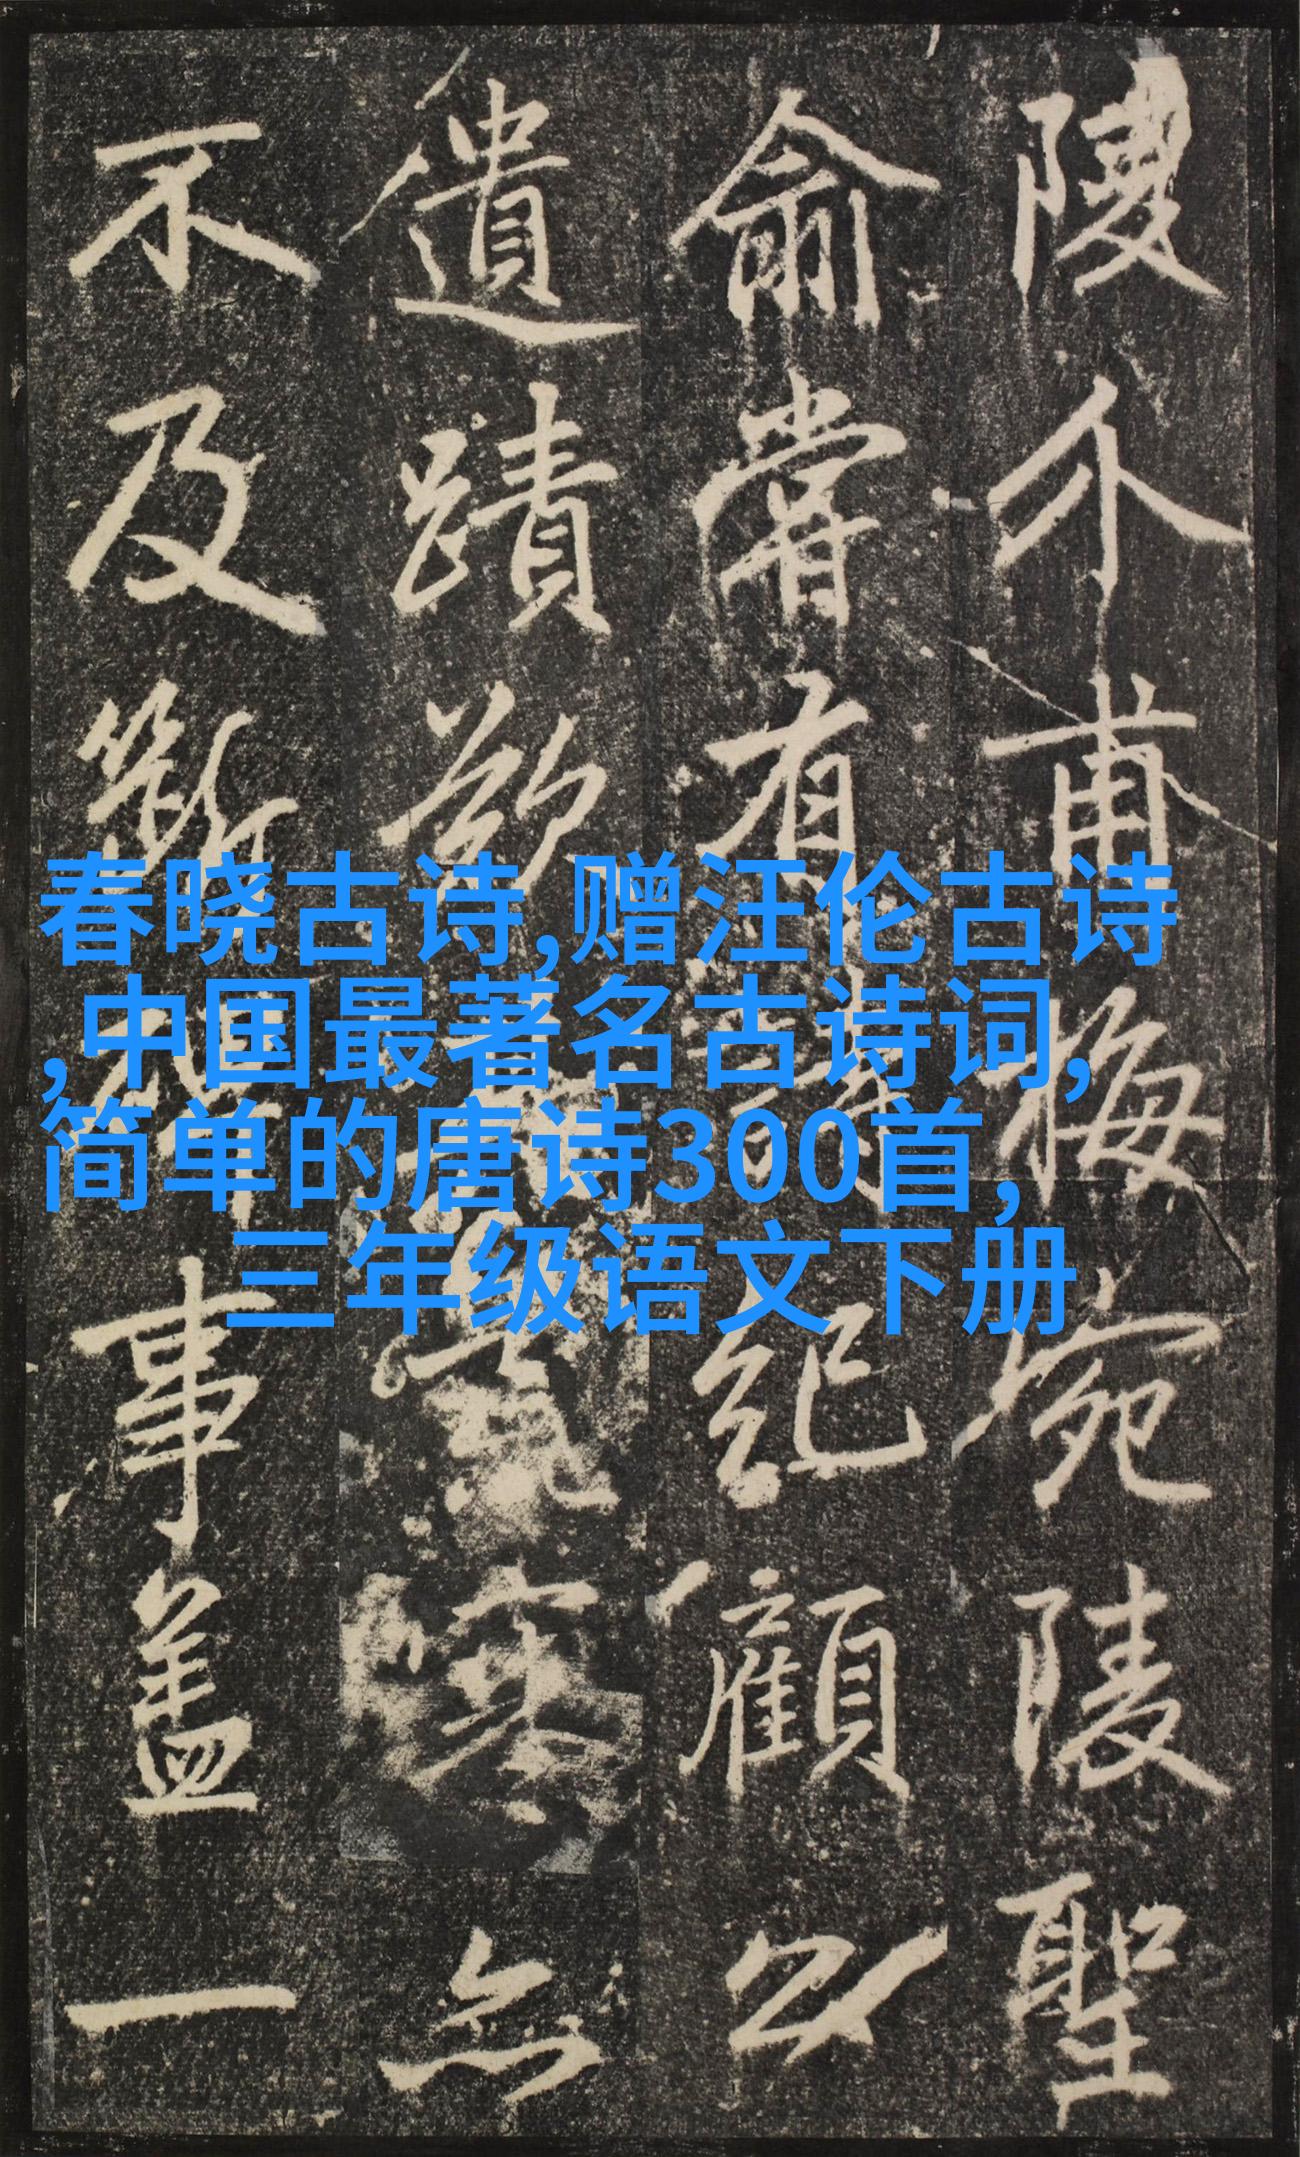 春晓古诗,赠汪伦古诗
,中国最著名古诗词,
简单的唐诗300首,
三年级语文下册
陵介甫梅宛陵聖
俞嘗有詩紀顧以
遺蹟無
不及斷碑事蓋一